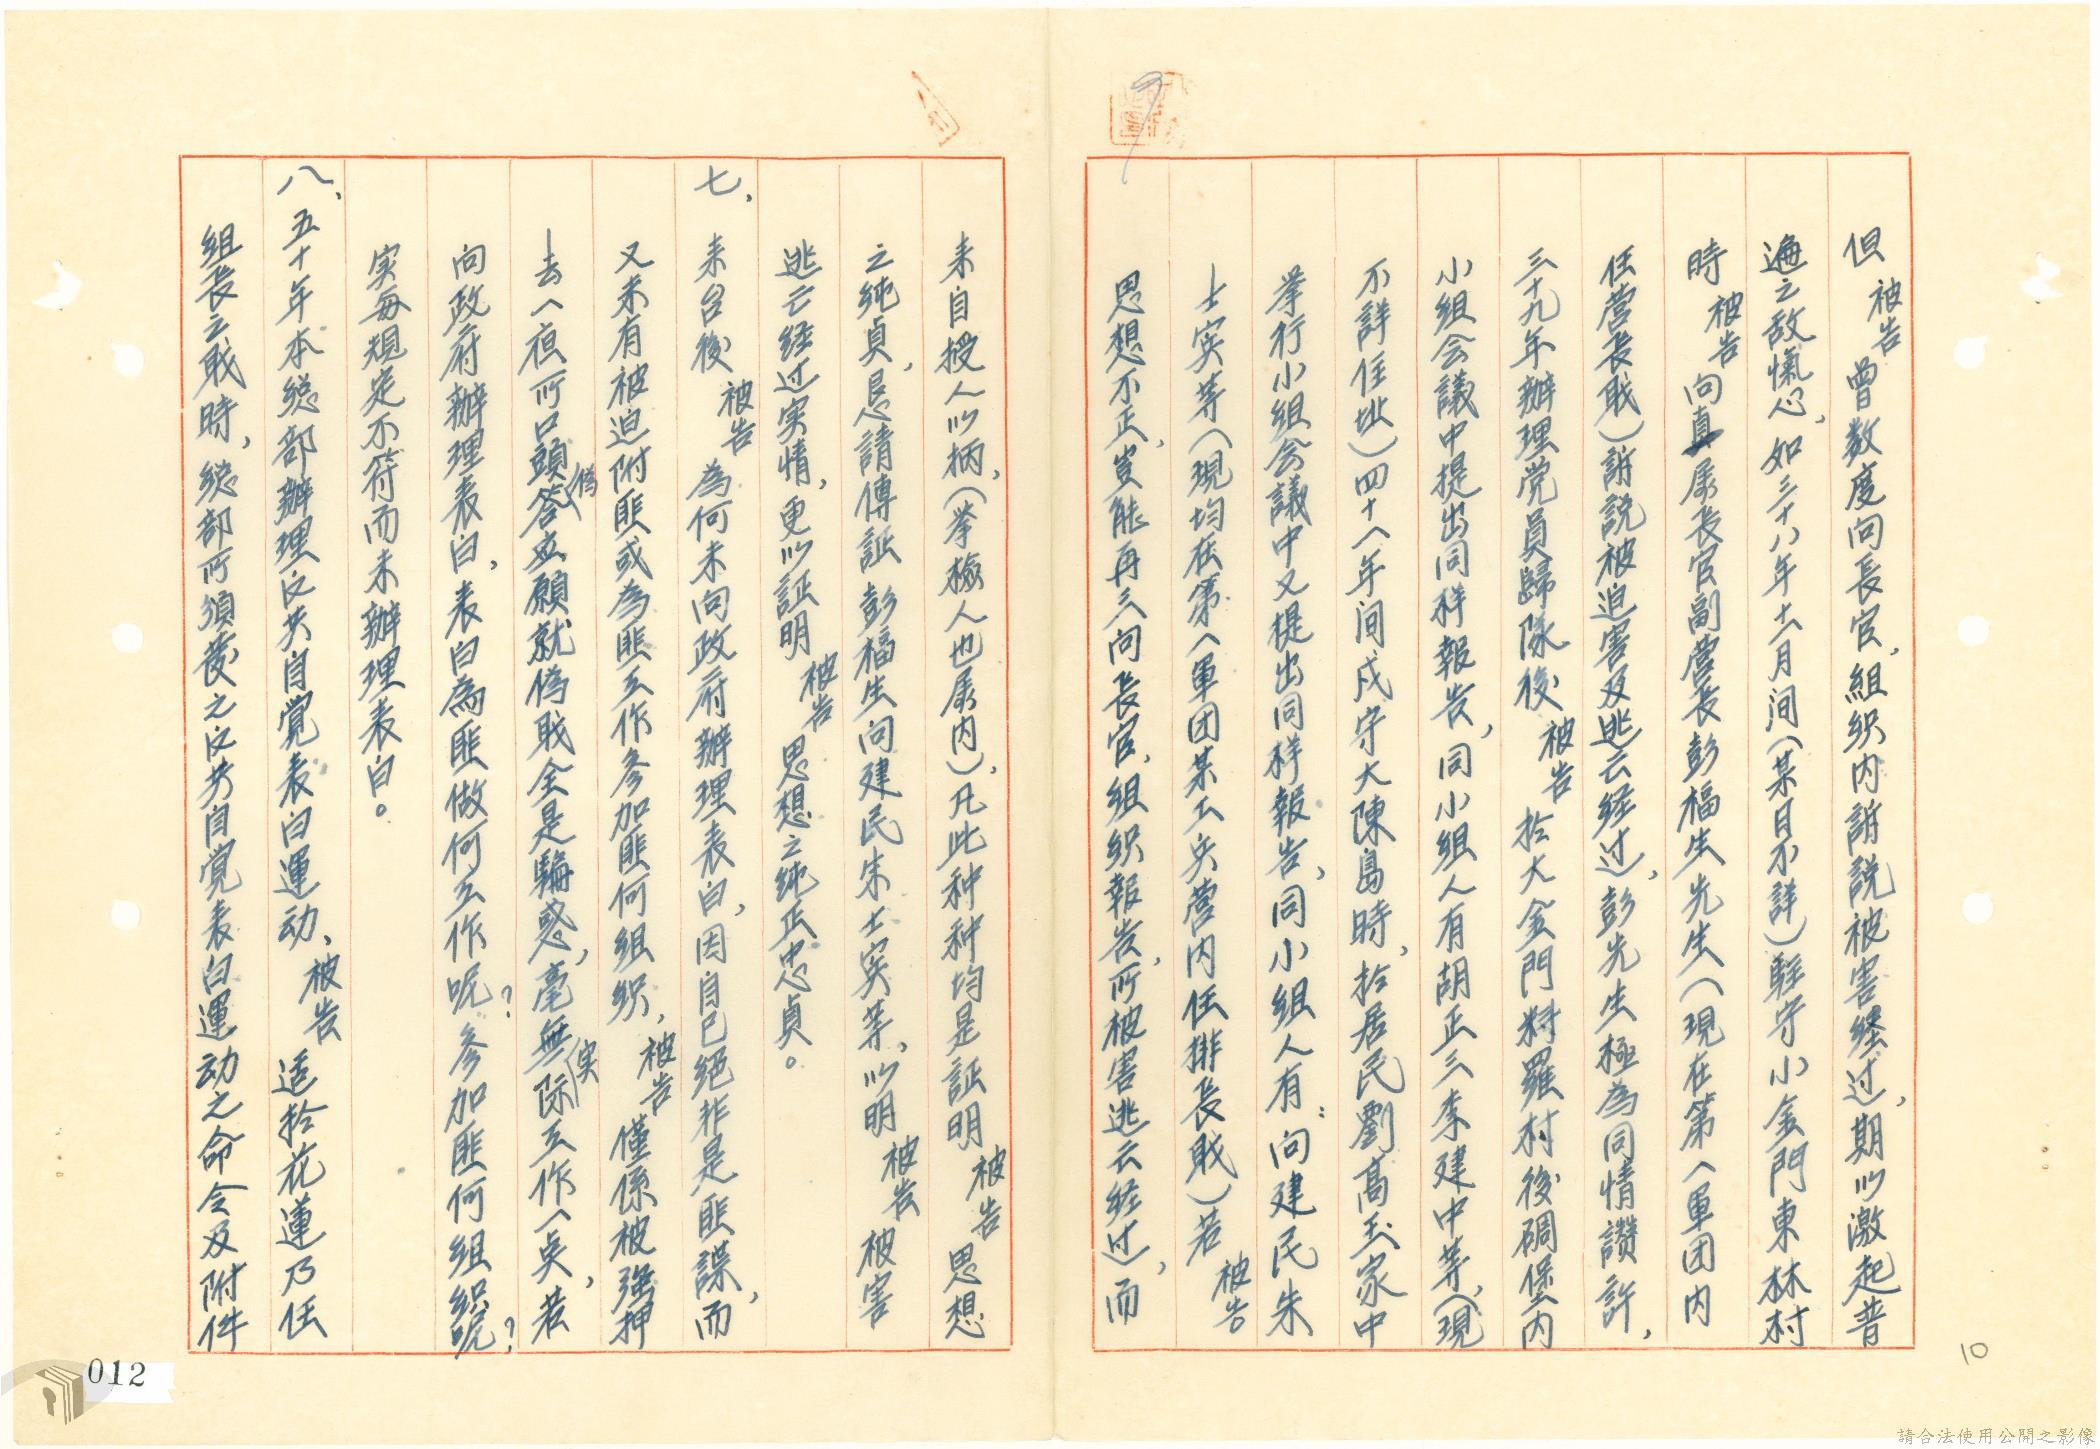 但被告曾数度向長官,組织内訴説被害経过,期以激起普
遍之敌愾心,如三十八年十一月间(某日不詳)駐守小金門東林村
時被告向真属長官副营長彭福生先生(現在第一軍团内
任营長戝)訴説被迫害及逃亡経过,彭先生極為同情讚許,
三十九年辦理党員歸隊後被告扵大金門料羅村後碉堡内
小組会議中提出同样報告,同小組人有胡正三李建中等,(現
不詳住址)四十八年间戍守大陳島時,扵居民劉高玉家中
挙行小組会議中又提出同样報告,同小組人有:向建民朱
士寅等(現均在第一軍团某工兵营内任排長戝)若被告
思想不正,豈能再三向長官,組织報告,所被害逃亡経过,而
来自授人以柄,(挙檢人也属内),凡此种种均是証明被告思想
之純貞,恳請傳訊彭福生向建民朱士寅等,以明被告被害
逃亡経过実情,更以証明被告思想之純正忠貞。
七、来台後被告為何未向政府辦理表白,因自己絕非是匪諜,而
又未有被迫附匪或為匪工作参加匪何組织,被告僅係被强押
去一夜所口頭(偽)答应願就偽戝全是騙惑,毫無(实)际工作一点,若
向政府辦理表白,表白為匪做何工作呢?参加匪何組织呢?
实每規定不符而未辦理表白。
八、五十年本総部辦理反共自覚表白運动,被告适扵花蓮乃任
組長之戝時,総部所頒發之反共自覚表白運动之命令及附件
10
012
請合法使用公開之影像